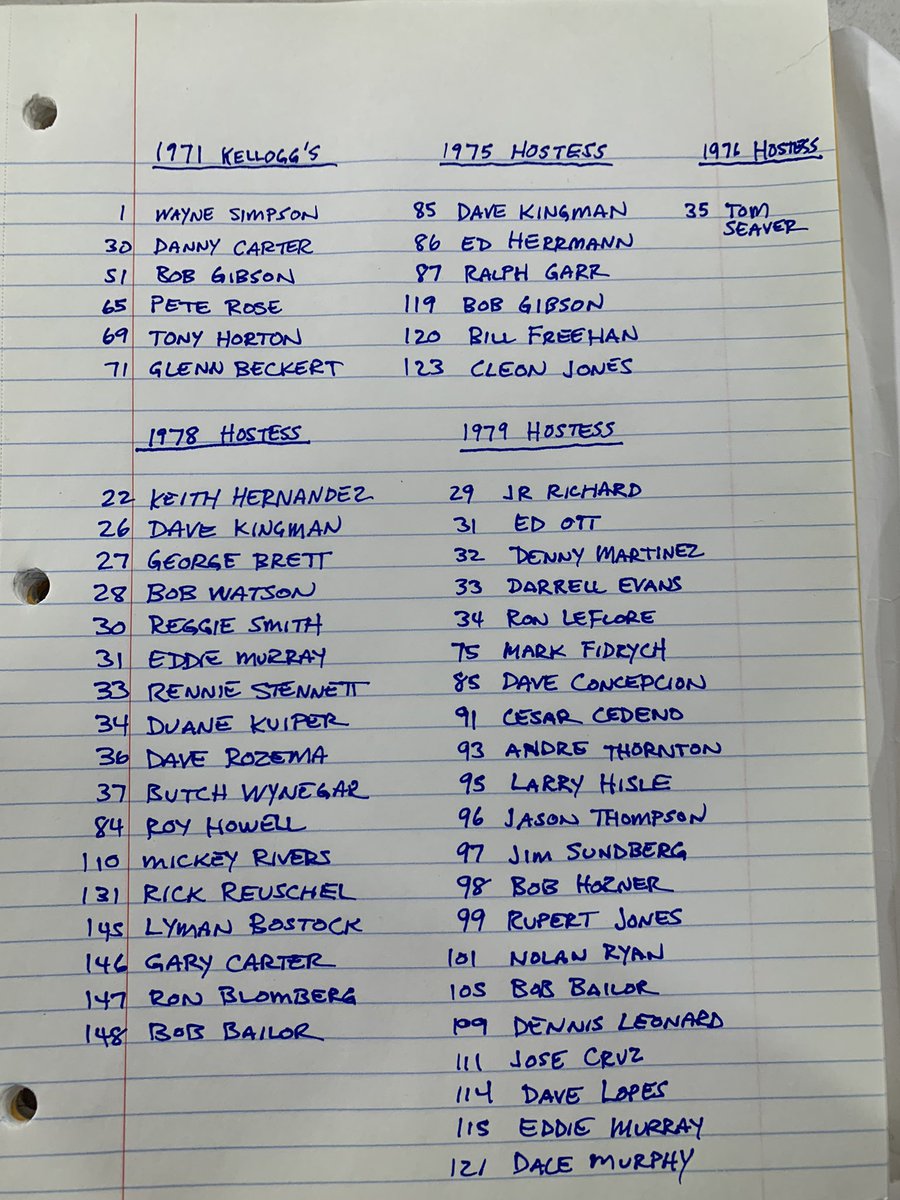 1971 KELLOGG'S
1 WAYNE SIMPSON
30 DANNY CARTER
51 BOB GIBSON
65 PETE ROSE
69 TONY HORTON
71 GLENN BECKERT
1975 HOSTESS
85 DAVE KINGMAN
86 ED HERRMANN
87 RALPH GARR
119 BOB GIBSON
120 BILL FREEHAN
123 CLEON JONES
1976 HOSTESS
35 TOM
SEAVER
1978 HOSTESS
22 KEITH HERNANDEZ
26 DAVE KINGMAN
27 GEORGE BRETT
28 BOB WATSON
30 REGGIE SMITH
31 EDDIE MURRAY
33 RENNIE STENNETT
34 DUANE KUIPER
36 DAVE ROZEMA
37 BUTCH WYNEGAR
84 ROY HOWELL
110 MICKEY RIVERS
131 RICK REUSCHEL
145 LYMAN BOSTOCK
146 GARY CARTER
147 RON BLOMBERG
148 BOB BAILOR
1979 HOSTESS
29 JR RICHARD
31 ED OTT
32 DENNY MARTINEZ
33 DARRELL EVANS
34 RON LEFLORE
75 MARK FIDRYCH
85 DAVE CONCEPCION
91 CESAR CEDENO
93 ANDRE THORNTON
95 LARRY HISLE
96 JASON THOMPSON
97 JIM SUNDBERG
98 BOB HORNER
99 RUPERT JONES
101 NOLAN RYAN
105 BOB BAILOR
109 DENNIS LEONARD
111 JOSE CRUZ
114 DAVE LOPES
115 EDDIE MURRAY
121 DALE MURPHY